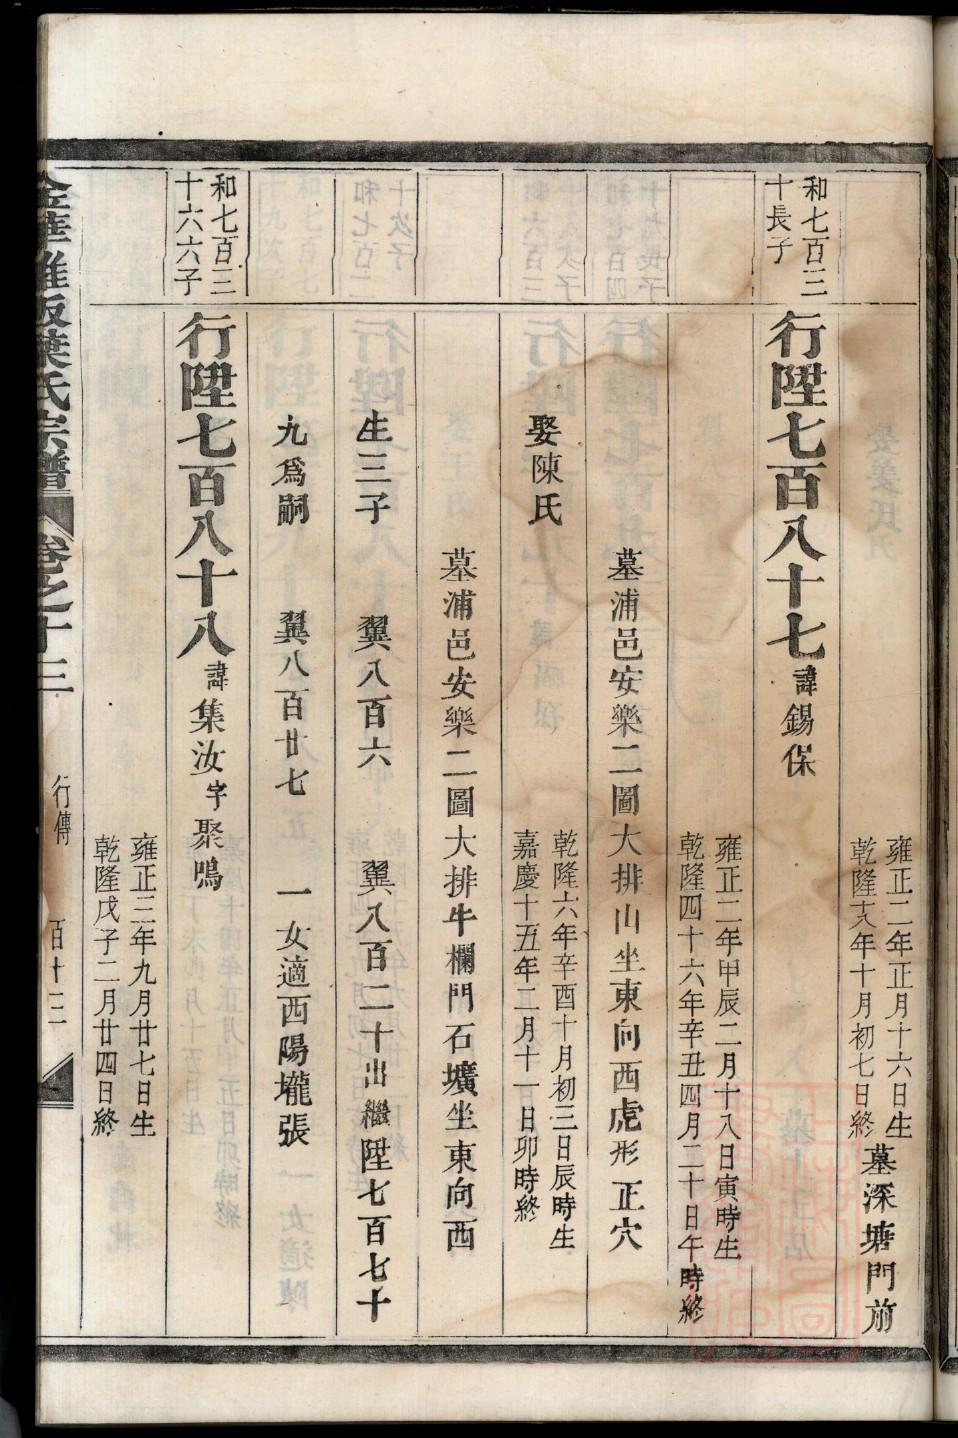 雍正二年正月十六日生
乾隆十八年十月初七日終
墓深塘門前
和七百三
十長子
行陞七百八十七
諱錫保
雍正二年甲辰二月十八日寅時生
乾隆四十六年辛丑四月二十日午時終
墓浦邑安樂二圖大排山坐東向西虎形正穴
娶陳氏
乾隆六年辛酉十月初三日辰時生
嘉慶十五年二月十一日卯時終
墓浦邑安樂二圖大排牛欄門石壙坐東向西
生三子 翼八百六 翼八百二十出繼陞七百七十
九爲嗣 翼八百廿七 一女適西陽壠張
和七百三
十六六子
行陞七百八十八
諱集汝字聚鳴
雍正三年九月廿七日生
乾隆戊子二月廿四日終
華 葉氏宗譜
卷之十三
行傳
百十三